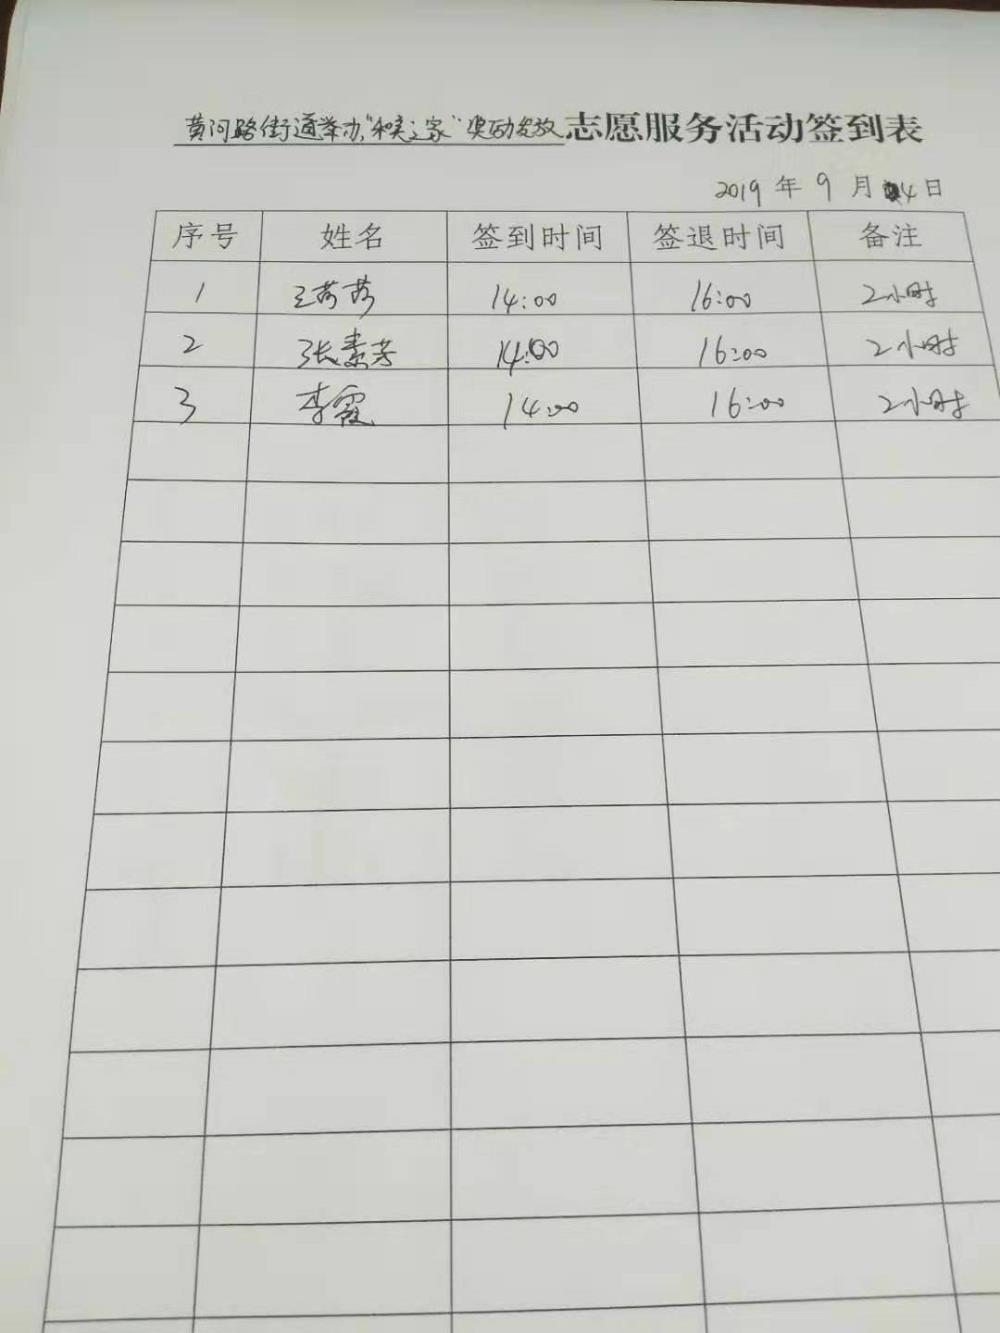 黄河路街道举办"和美之家"奖励发放志愿服务活动签到表
2019年9月4日
序号 姓名 签到时间 签退时间 备注
1 王芳芳 14:00 16:00 2小时
2 张素芳 14:00 16:00 2小时
3 李霞 14:00 16:00 2小时